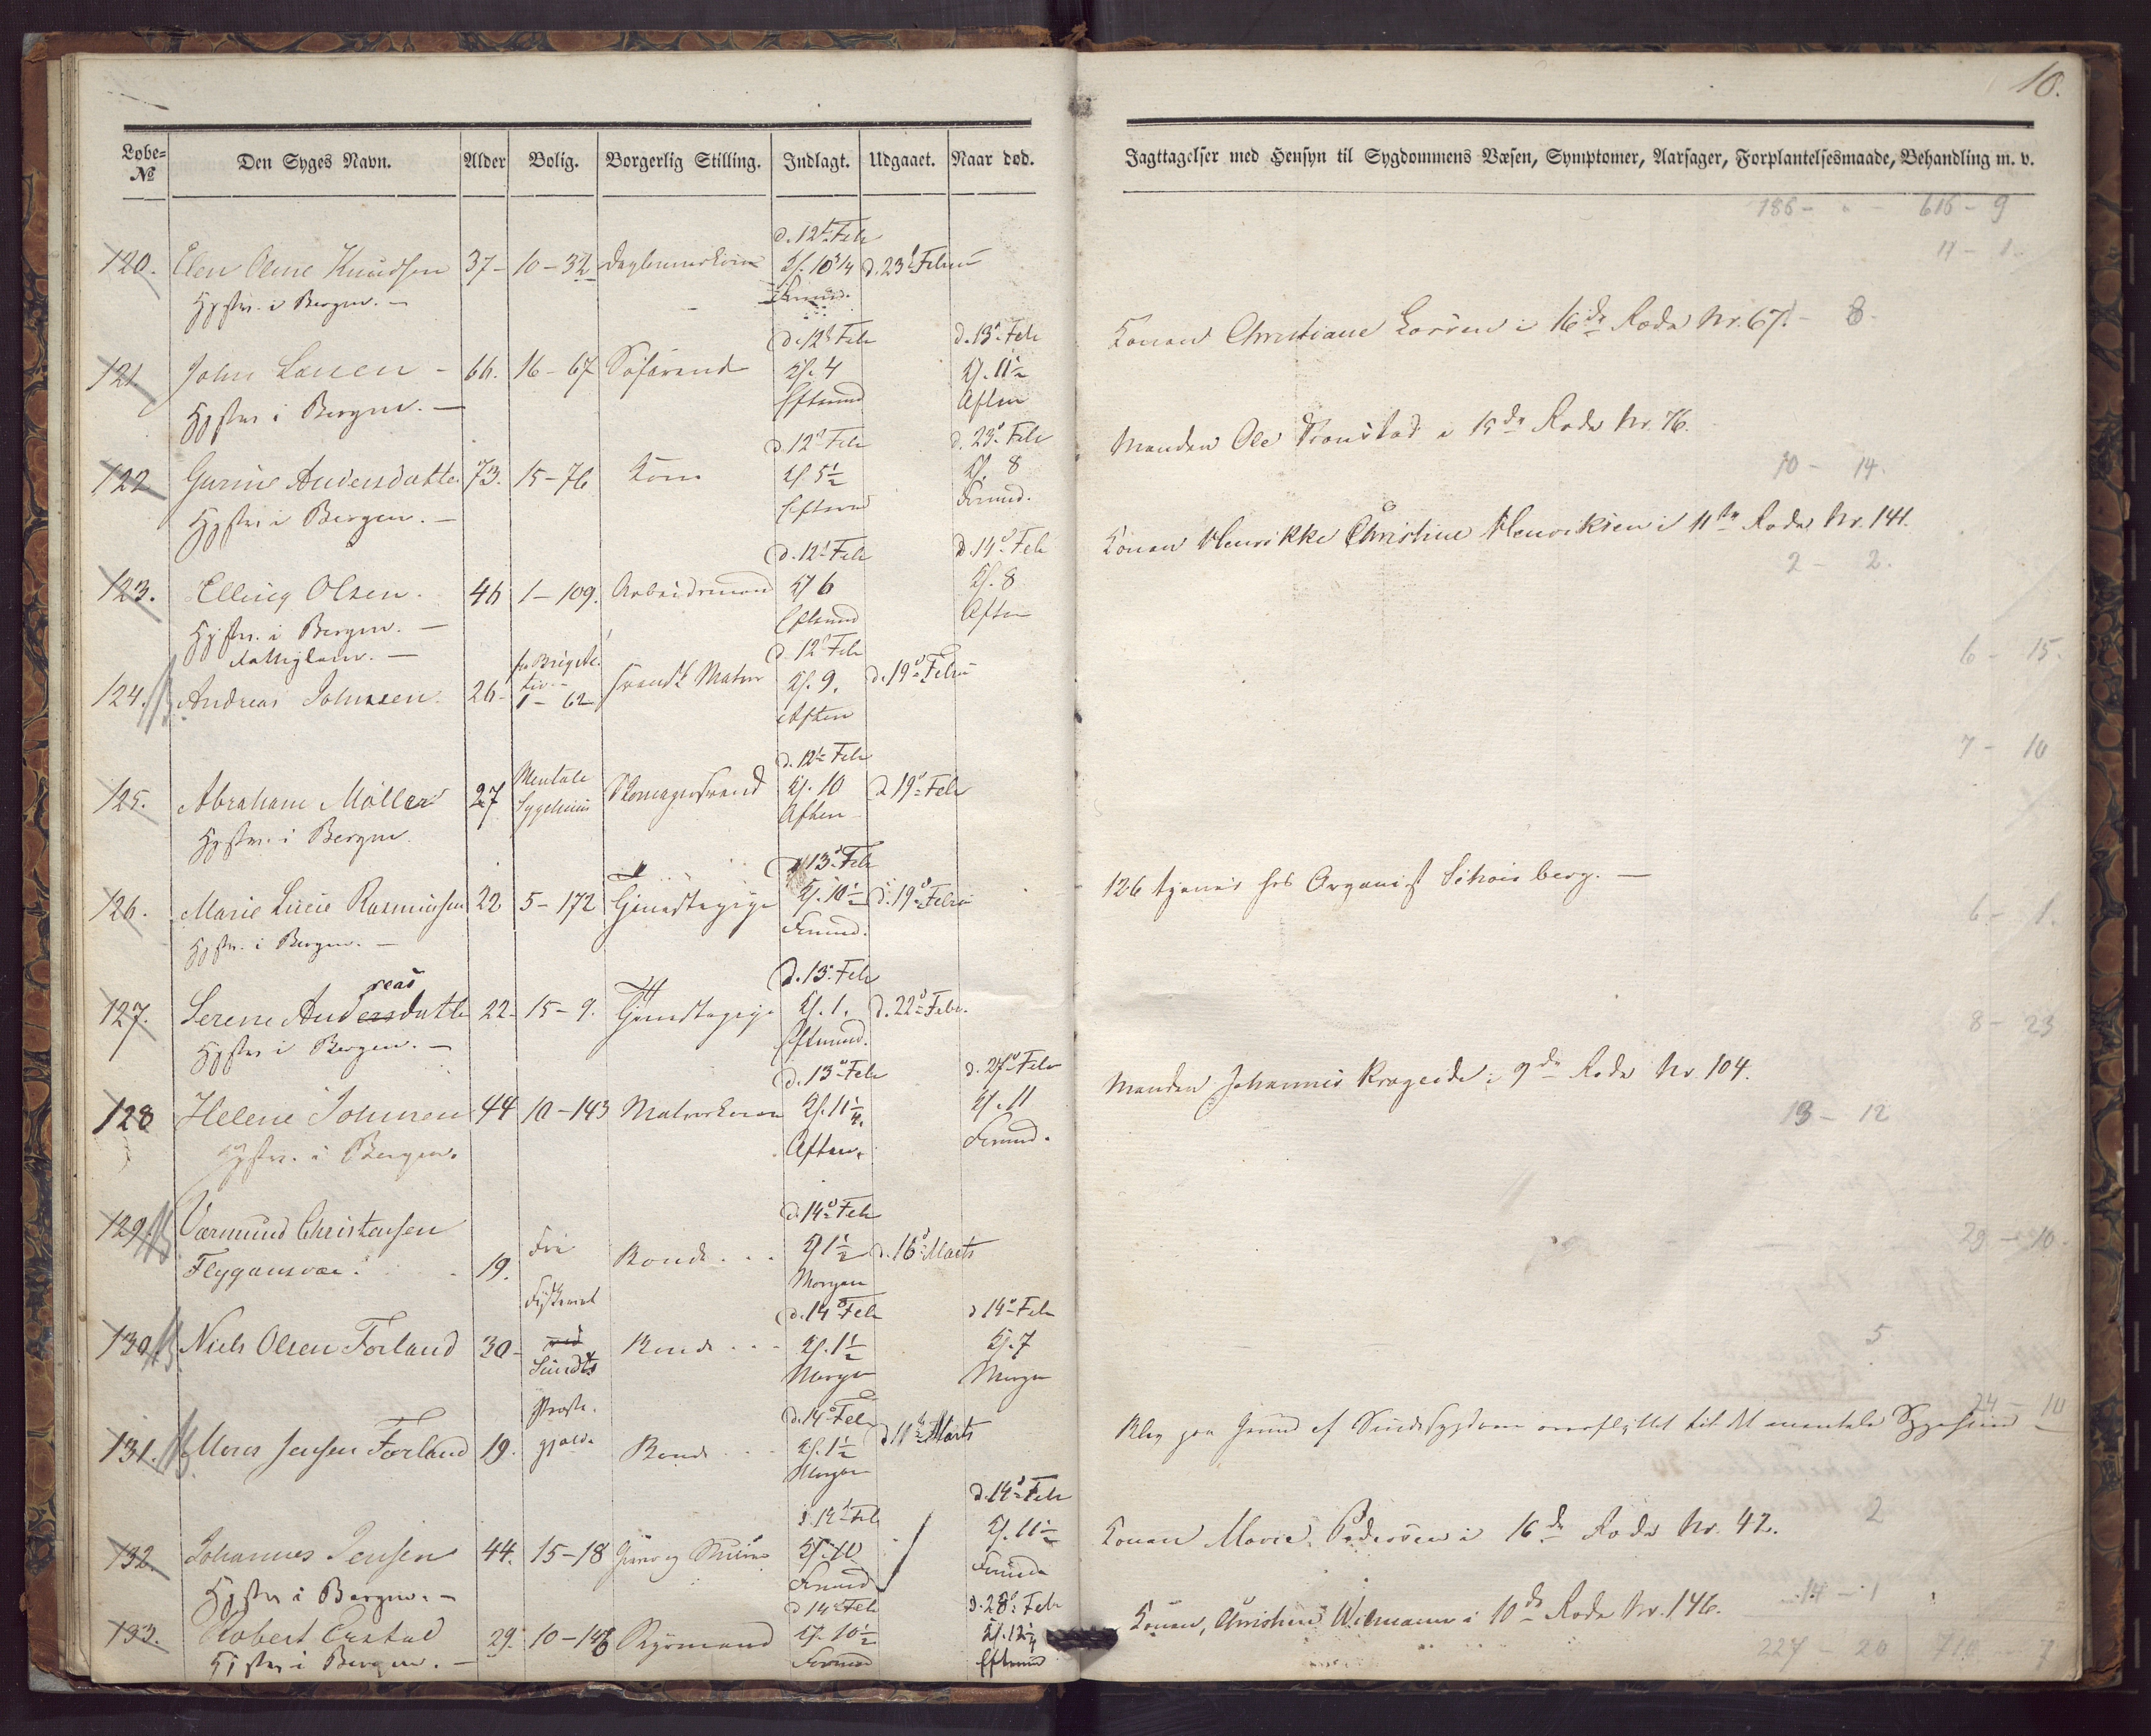 10.
Løbe= No
Den Syges Navn.
Alder
Bolig.
Borgerlig Stilling.
Indlagt.
Udgaaet.
Naar død.
Jagttagelser med Hensyn til Sygdommens Væsen, Symptomer, Aarsager, Forplantelsesmaade, Behandling m. v.
186 - " - 616 - 9
11 - 1.
d. 12t Febr
120. Elen Oline Knudsen 37 - 10 - 32 Kl. 10 3/4 d. 23d Februar
Hjstv. i Bergen. - Formd.
d. 12t Febr d. 13d Febr
121. John Lassen - 66. 16 - 67 Søfarende Kl. 4 Kl. 11 1/2
Hjstv i Bergen. - Eftermd Aften
Konen Christiane Lassen i 16de Rode Nr. 67. - 8.
d. 12d Febr d. 23d Febr
122 Gurine Andersdatter 73. 15 - 76 Kone Kl 5 1/2 Kl. 8
Hjstv i Bergen. - Eftermd Formd.
Manden Ole i 15de Rode Nr. 76.
10 - 14.
d. 12t Febr d. 14d Febr
123. Elling Olsen. 46 1 - 109. Arbeidsmand Kl 6 Kl. 8
Hjstv. i Bergen. - Eftermd Aften
Konen Henrikke Christine Henriksen i 11te Rode Nr. 141.
2 - 2.
6 - 15.
d 12d Febr
124. Andreas Johnsen. 26 - 1 - 62 svensk Matros Kl. 9. d. 19d Febru
Aften
7 - 10
d. 12te Febr
125. Abraham Möller 27 Mentale Sygehuus Kl. 10 d 19d Febr
Hjstv. i Bergen. Aften
d 13d Febr
126. Marie Lucie Rasmussen 22 5 - 172 Tjenestepige Kl. 10 1/2 d. 19d Febru
Hjstv. i Bergen. - Formd.
126 tjener hos Organist Schoisberg. -
6 - 1.
reas d. 13d Febr
127. Serene Andersdatter 22 - 15 - 9. Tjenestepige Kl. 1. d. 22d Febr.
Hjstv i Bergen. - Eftermd.
8 - 23
d. 13d Febr d. 27d Febr
128 Helene Johnsen 44 10 - 143 Matroskone Kl. 11 1/4. Kl. 11
Hjstv. i Bergen. Aften. Formd.
Manden Johannes Krageide i 9de Rode Nr. 104.
13 - 12
d. 14d Febr
129. Vermund Christensen
Flygansvær. 19. Fra Bonde . . Kl 1 1/2 d. 16d Marts
Morgen
29 - 10.
Fiskeriet d. 14d Febr d 14d Febr
130. Niels Olsen Førland 30 - ved Bonde . . Kl. 1 1/2 Kl. 7
Sundts Morgen Morgen
5
Præste. d. 14d Febr
131. Mons Jensen Førland 19. gjelde Bonde . . . Kl. 1 1/2 d 11te Marts
Morgen
24 - 10
Blev paa Grund af Sindssygdom overflyttet til det mentale Sygehuus -
d. 14d Febr d. 14d Febr
132. Johannes Jensen 44. 15 - 18 Kl. 10 Kl. 11 1/2
Hjstv i Bergen. - Formd Formd
Konen Marie Pedersen i 16de Rode Nr. 42. 2
d 14d Febr d. 28d Febr
133. Robert Erstad 29. 10 - 146 Kl. 10 1/2 Kl. 12 1/4
Hjstv i Bergen. - Formd Eftermd
Konen, Christine Wilmann i 10de Rode Nr. 146. 14 - 1
227 - 20 710 - 7